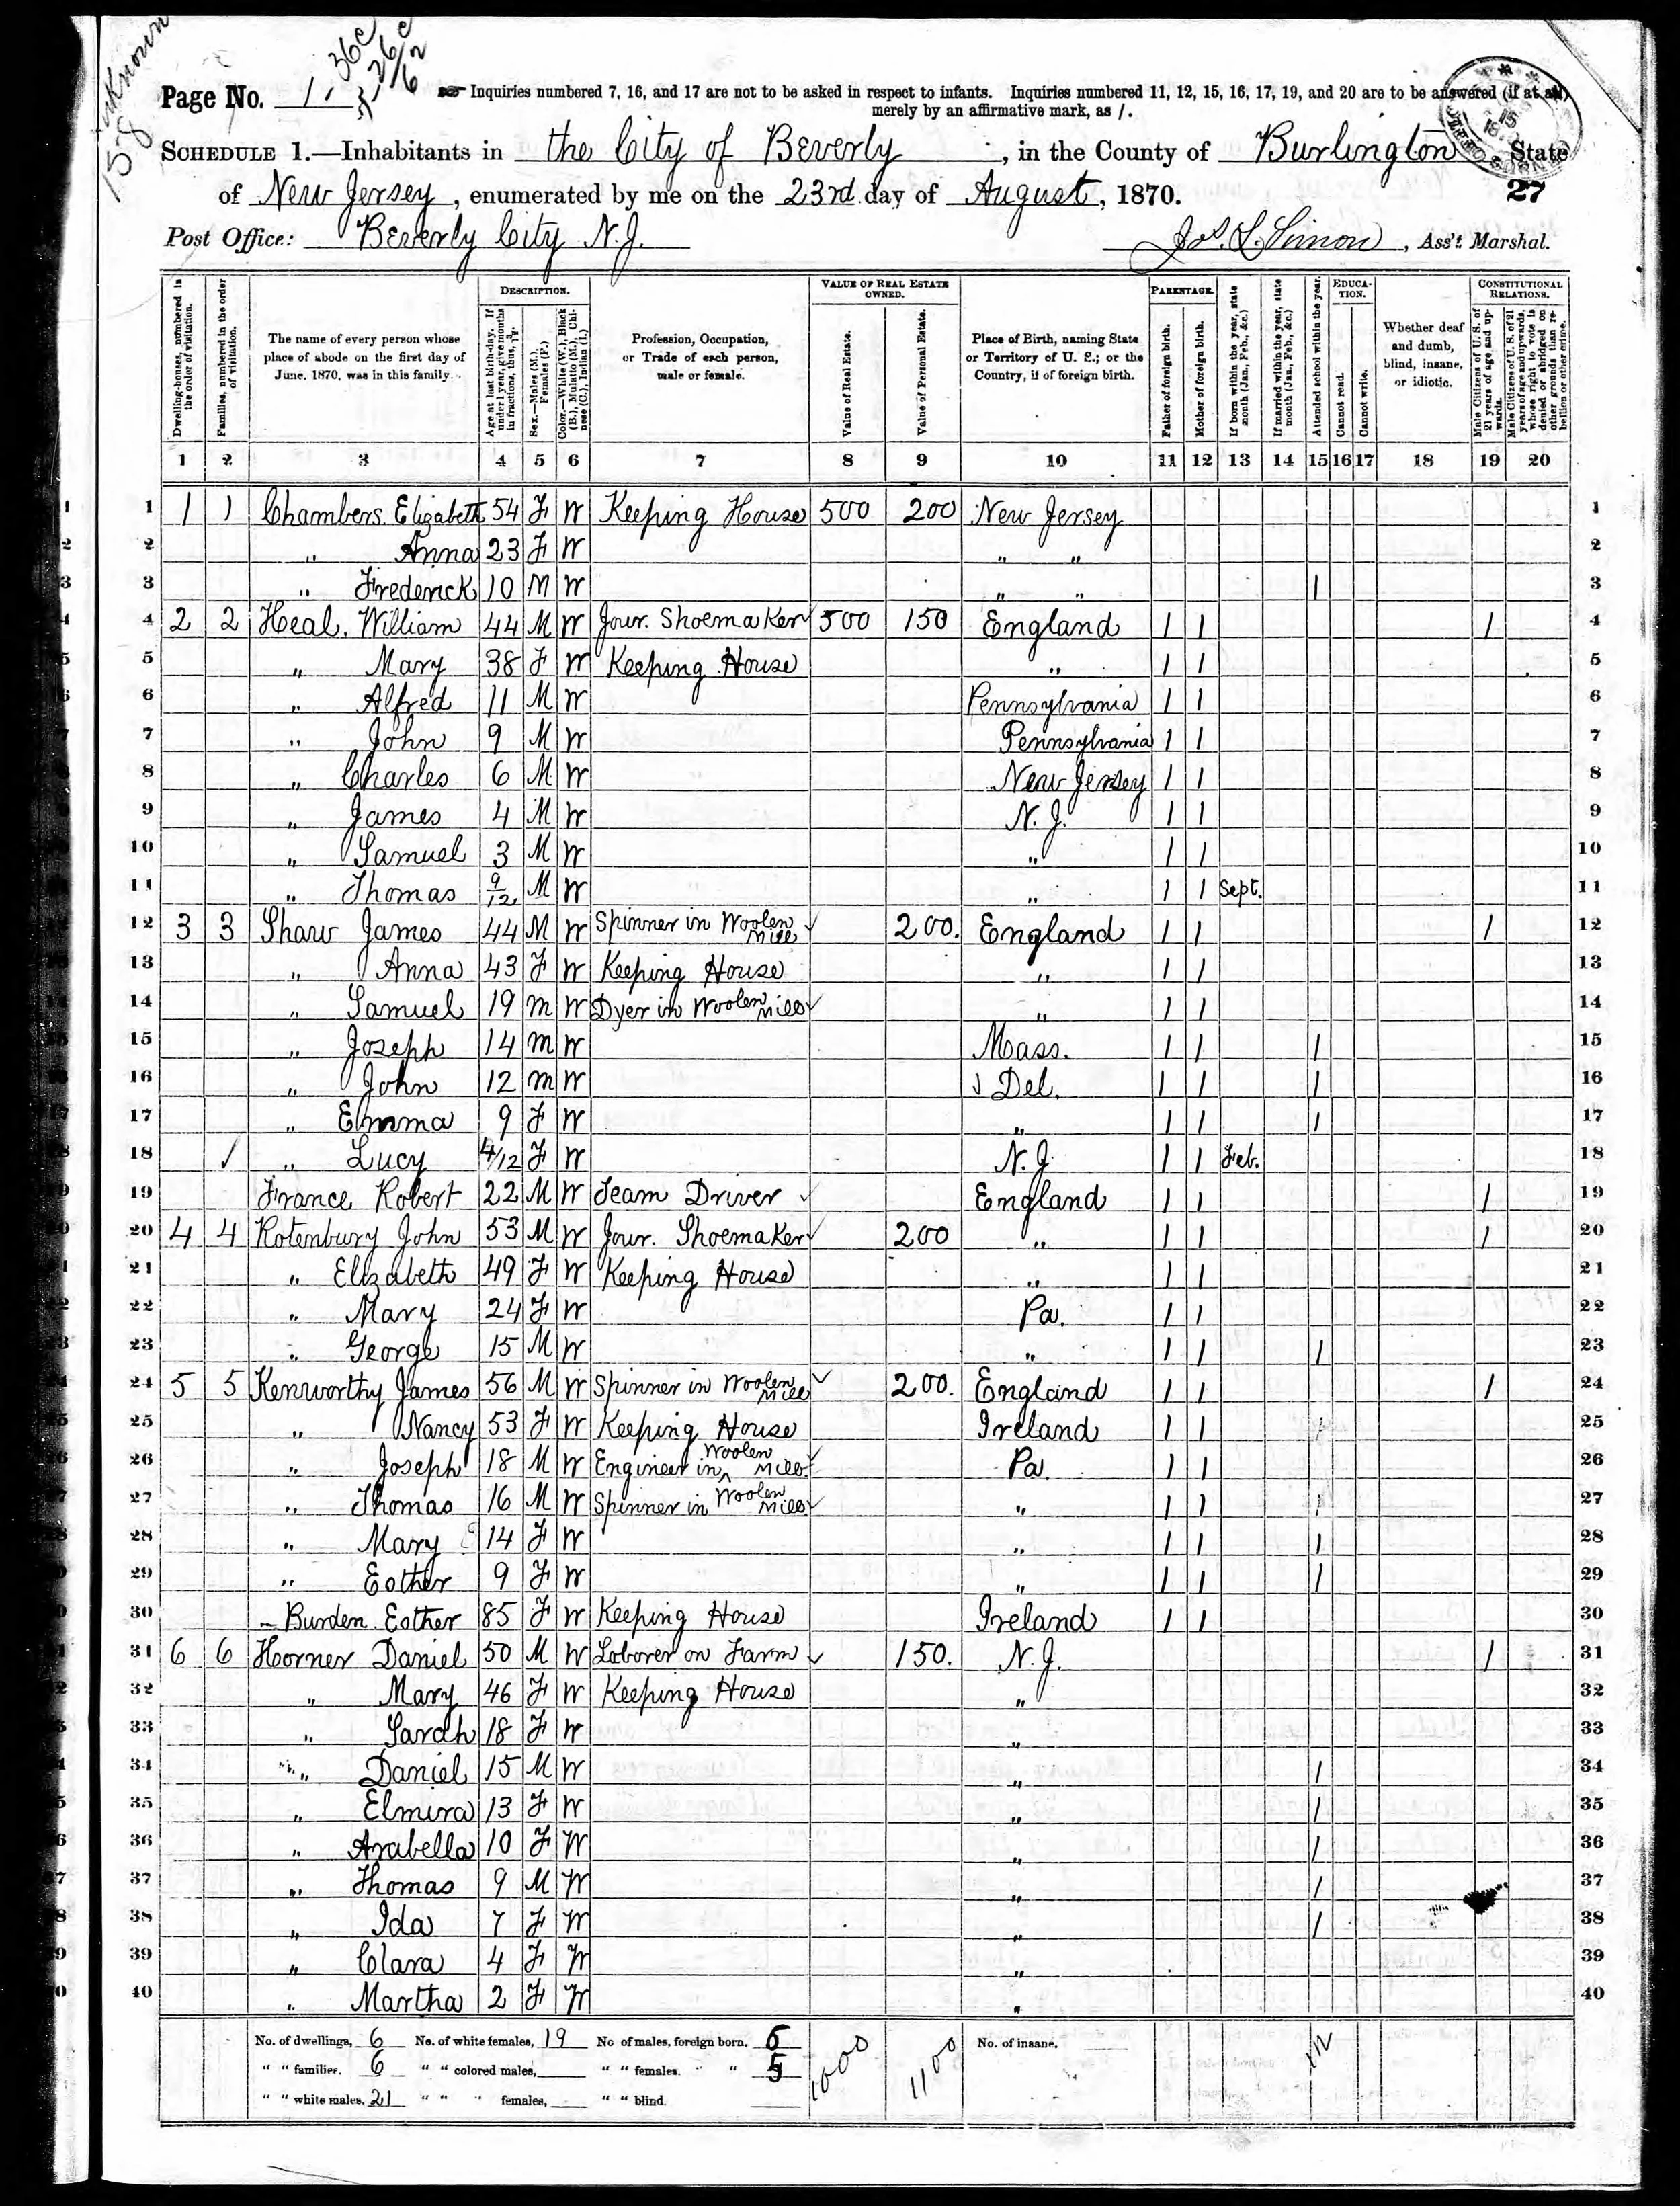 Unknown
158
36c
26c
5/62
Page No. 1. ☞ Inquiries numbered 7, 16, and 17 are not to be asked in respect to infants. Inquiries numbered 11, 12, 15, 16, 17, 19, and 20 are to be answered (if at all)
merely by an affirmative mark, as /.
SCHEDULE 1.—Inhabitants in the City of Beverly, in the County of Burlington State
of New Jersey, enumerated by me on the 23rd day of August, 1870. 27
Post Office: Beverly City N.J. Jos. L. Simon, Ass't Marshal.
Dwelling-houses, numbered in the order of visitation.
Families, numbered in the order of visitation.
The name of every person whose place of abode on the first day of June, 1870, was in this family.
DESCRIPTION.
Age at last birth-day. If under 1 year, give months in fractions, thus, 3/12.
Sex.—Males (M.), Females (F.)
Color.—White (W.), Black (B.), Mulatto (M.), Chinese (C.), Indian (I.)
Profession, Occupation, or Trade of each person, male or female.
VALUE OF REAL ESTATE OWNED.
Value of Real Estate.
Value of Personal Estate.
Place of Birth, naming State or Territory of U. S.; or the Country, if of foreign birth.
PARENTAGE.
Father of foreign birth.
Mother of foreign birth.
If born within the year, state month (Jan., Feb., &c.)
If married within the year, state month (Jan., Feb., &c.)
Attended school within the year.
EDUCATION.
Cannot read.
Cannot write.
Whether deaf and dumb, blind, insane, or idiotic.
CONSTITUTIONAL RELATIONS.
Male Citizens of U. S. of 21 years of age and upwards.
Male Citizens of U. S. of 21 years of age and upwards, whose right to vote is denied or abridged on other grounds than rebellion or other crime.
1 2 3 4 5 6 7 8 9 10 11 12 13 14 15 16 17 18 19 20
1 1 1 Chambers Elizabeth 54 F W Keeping House 500 200 New Jersey 1
2 " Anna 23 F W " " 2
3 " Frederick 10 M W " " / 3
4 2 2 Heal. William 44 M W Jour. Shoemaker 500 150 England / / / 4
5 " Mary 38 F W Keeping House " / / 5
6 " Alfred 11 M W Pennsylvania / / 6
7 " John 9 M W Pennsylvania / / 7
8 " Charles 6 M W New Jersey / / 8
9 " James 4 M W N.J. / / 9
10 " Samuel 3 M W " / / 10
11 " Thomas 9/12 M W " / / Sept. 11
12 3 3 Shaw James 44 M W Spinner in Woolen Mill 200. England / / / 12
13 " Anna 43 F W Keeping House " / / 13
14 " Samuel 19 M W Dyer in Woolen Mill " / / 14
15 " Joseph 14 M W Mass. / / / 15
16 " John 12 M W Del. / / / 16
17 " Emma 9 F W " / / / 17
18 " Lucy 4/12 F W N.J. / / Feb. 18
19 France Robert 22 M W Team Driver England / / / 19
20 4 4 Rotenbury John 53 M W Jour. Shoemaker 200 " / / / 20
21 " Elizabeth 49 F W Keeping House " / / 21
22 " Mary 24 F W Pa. / / 22
23 " George 15 M W " / / / 23
24 5 5 Kenworthy James 56 M W Spinner in Woolen Mill 200. England / / / 24
25 " Nancy 53 F W Keeping House Ireland / / 25
26 " Joseph 18 M W Engineer in Woolen Mill Pa. / / 26
27 " Thomas 16 M W Spinner in Woolen Mill " / / 27
28 " Mary 14 F W " / / / 28
29 " Esther 9 F W " / / / 29
30 Burden. Esther 85 F W Keeping House Ireland / / 30
31 6 6 Horner Daniel 50 M W Laborer on Farm 150. N.J. / 31
32 " Mary 46 F W Keeping House " 32
33 " Sarah 18 F W " 33
34 " Daniel 15 M W " / 34
35 " Elmira 13 F W " / 35
36 " Arabella 10 F W " / 36
37 " Thomas 9 M W " / 37
38 " Ida 7 F W " / 38
39 " Clara 4 F W " 39
40 " Martha 2 F W " 40
No. of dwellings, 6 No. of white females, 19 No of males, foreign born. 6 1000 1100 No. of insane. 12
" " families. 6 " " colored males, " " females. " 5
" " white males, 21 " " " females, " " blind.